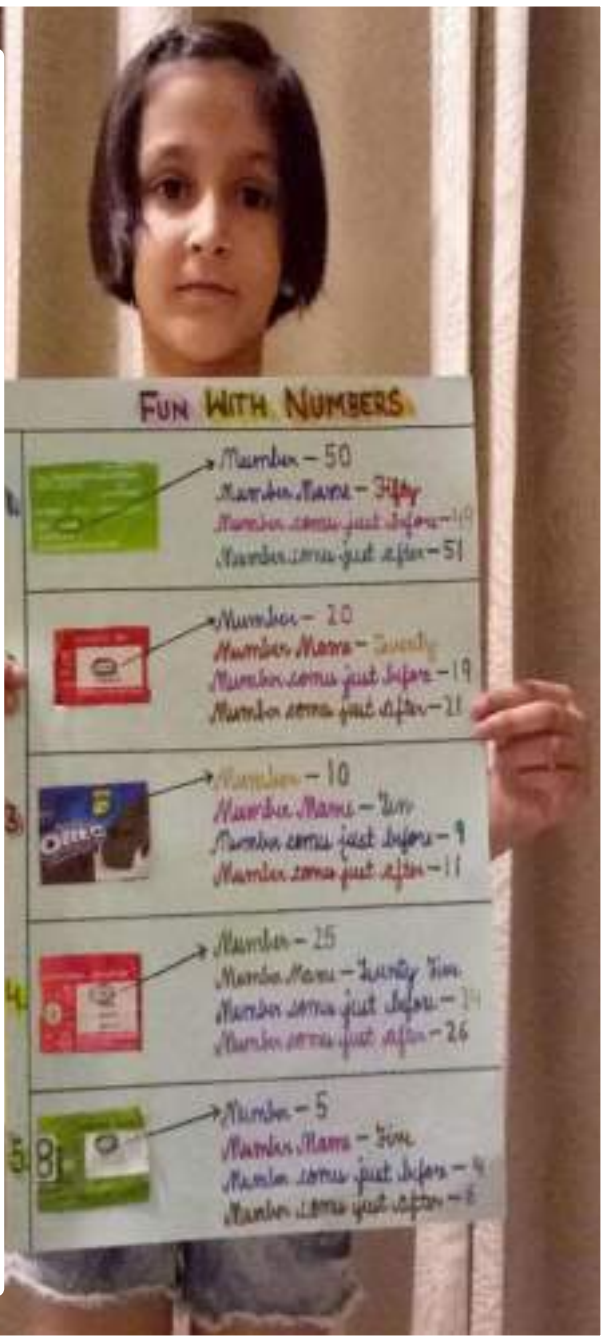 FUN WITH NUMBERS
Number - 50
Number Name - Fifty
Number comes just before - 49
Number comes just after - 51
Number - 20
Number Name - Twenty
Number comes just before - 19
Number comes just after - 21
3.
OREO
Number - 10
Number Name - Ten
Number comes just before - 9
Number comes just after - 11
4.
Number - 25
Number Name - Twenty Five
Number comes just before - 24
Number comes just after - 26
5.
Number - 5
Number Name - Five
Number comes just before - 4
Number comes just after - 6